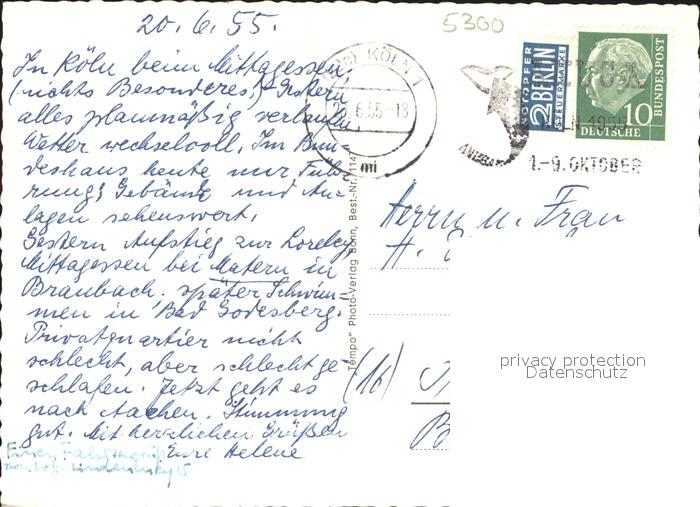 20.6.55.
5300
In Köln beim Mittagessen,
(nichts Besonderes). Gestern
alles planmäßig verlaufen,
Wetter wechselvoll. Im Bun-
deshaus heute nur Füh-
rung, Gebäude und An-
lagen sehenswert.
Gestern Aufstieg zur Loreley,
Mittagessen bei Matern in
Braubach, später Schwim-
men in Bad Godesberg.
Privatquartier nicht
schlecht, aber schlecht ge-
schlafen. Jetzt geht es
nach Aachen. Stimmung
gut. Mit herzlichen Grüßen
Eure Helene
Einen Fahrtengruß
"Tempo" Photo-Verlag Bonn, Best.-Nr. 1147
KÖLN 1
6.55-18
mi
NOTOPFER
2 BERLIN
STEUERMARKE
DEUTSCHE
BUNDESPOST
10
KÖLN 1955
1.-9. OKTOBER
Herrn u. Frau
H.
(16)
B
privacy protection
Datenschutz